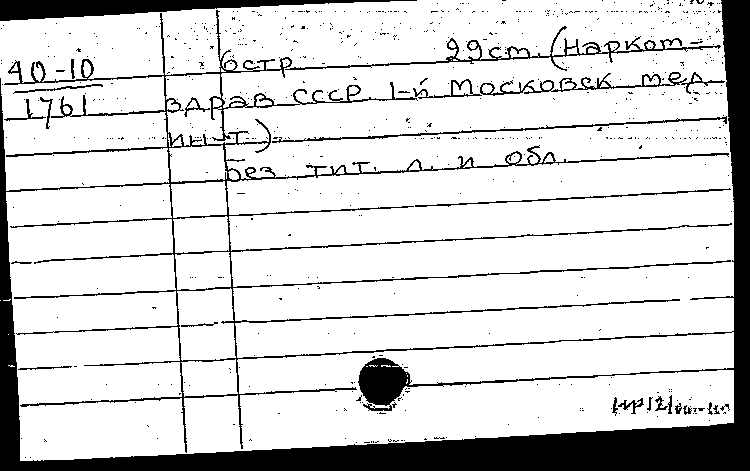 40-10 бстр 29 см. (Нарком-
1761 здрав СССР 1-й Московск мед
ин-т)
без тит. л. и обл.